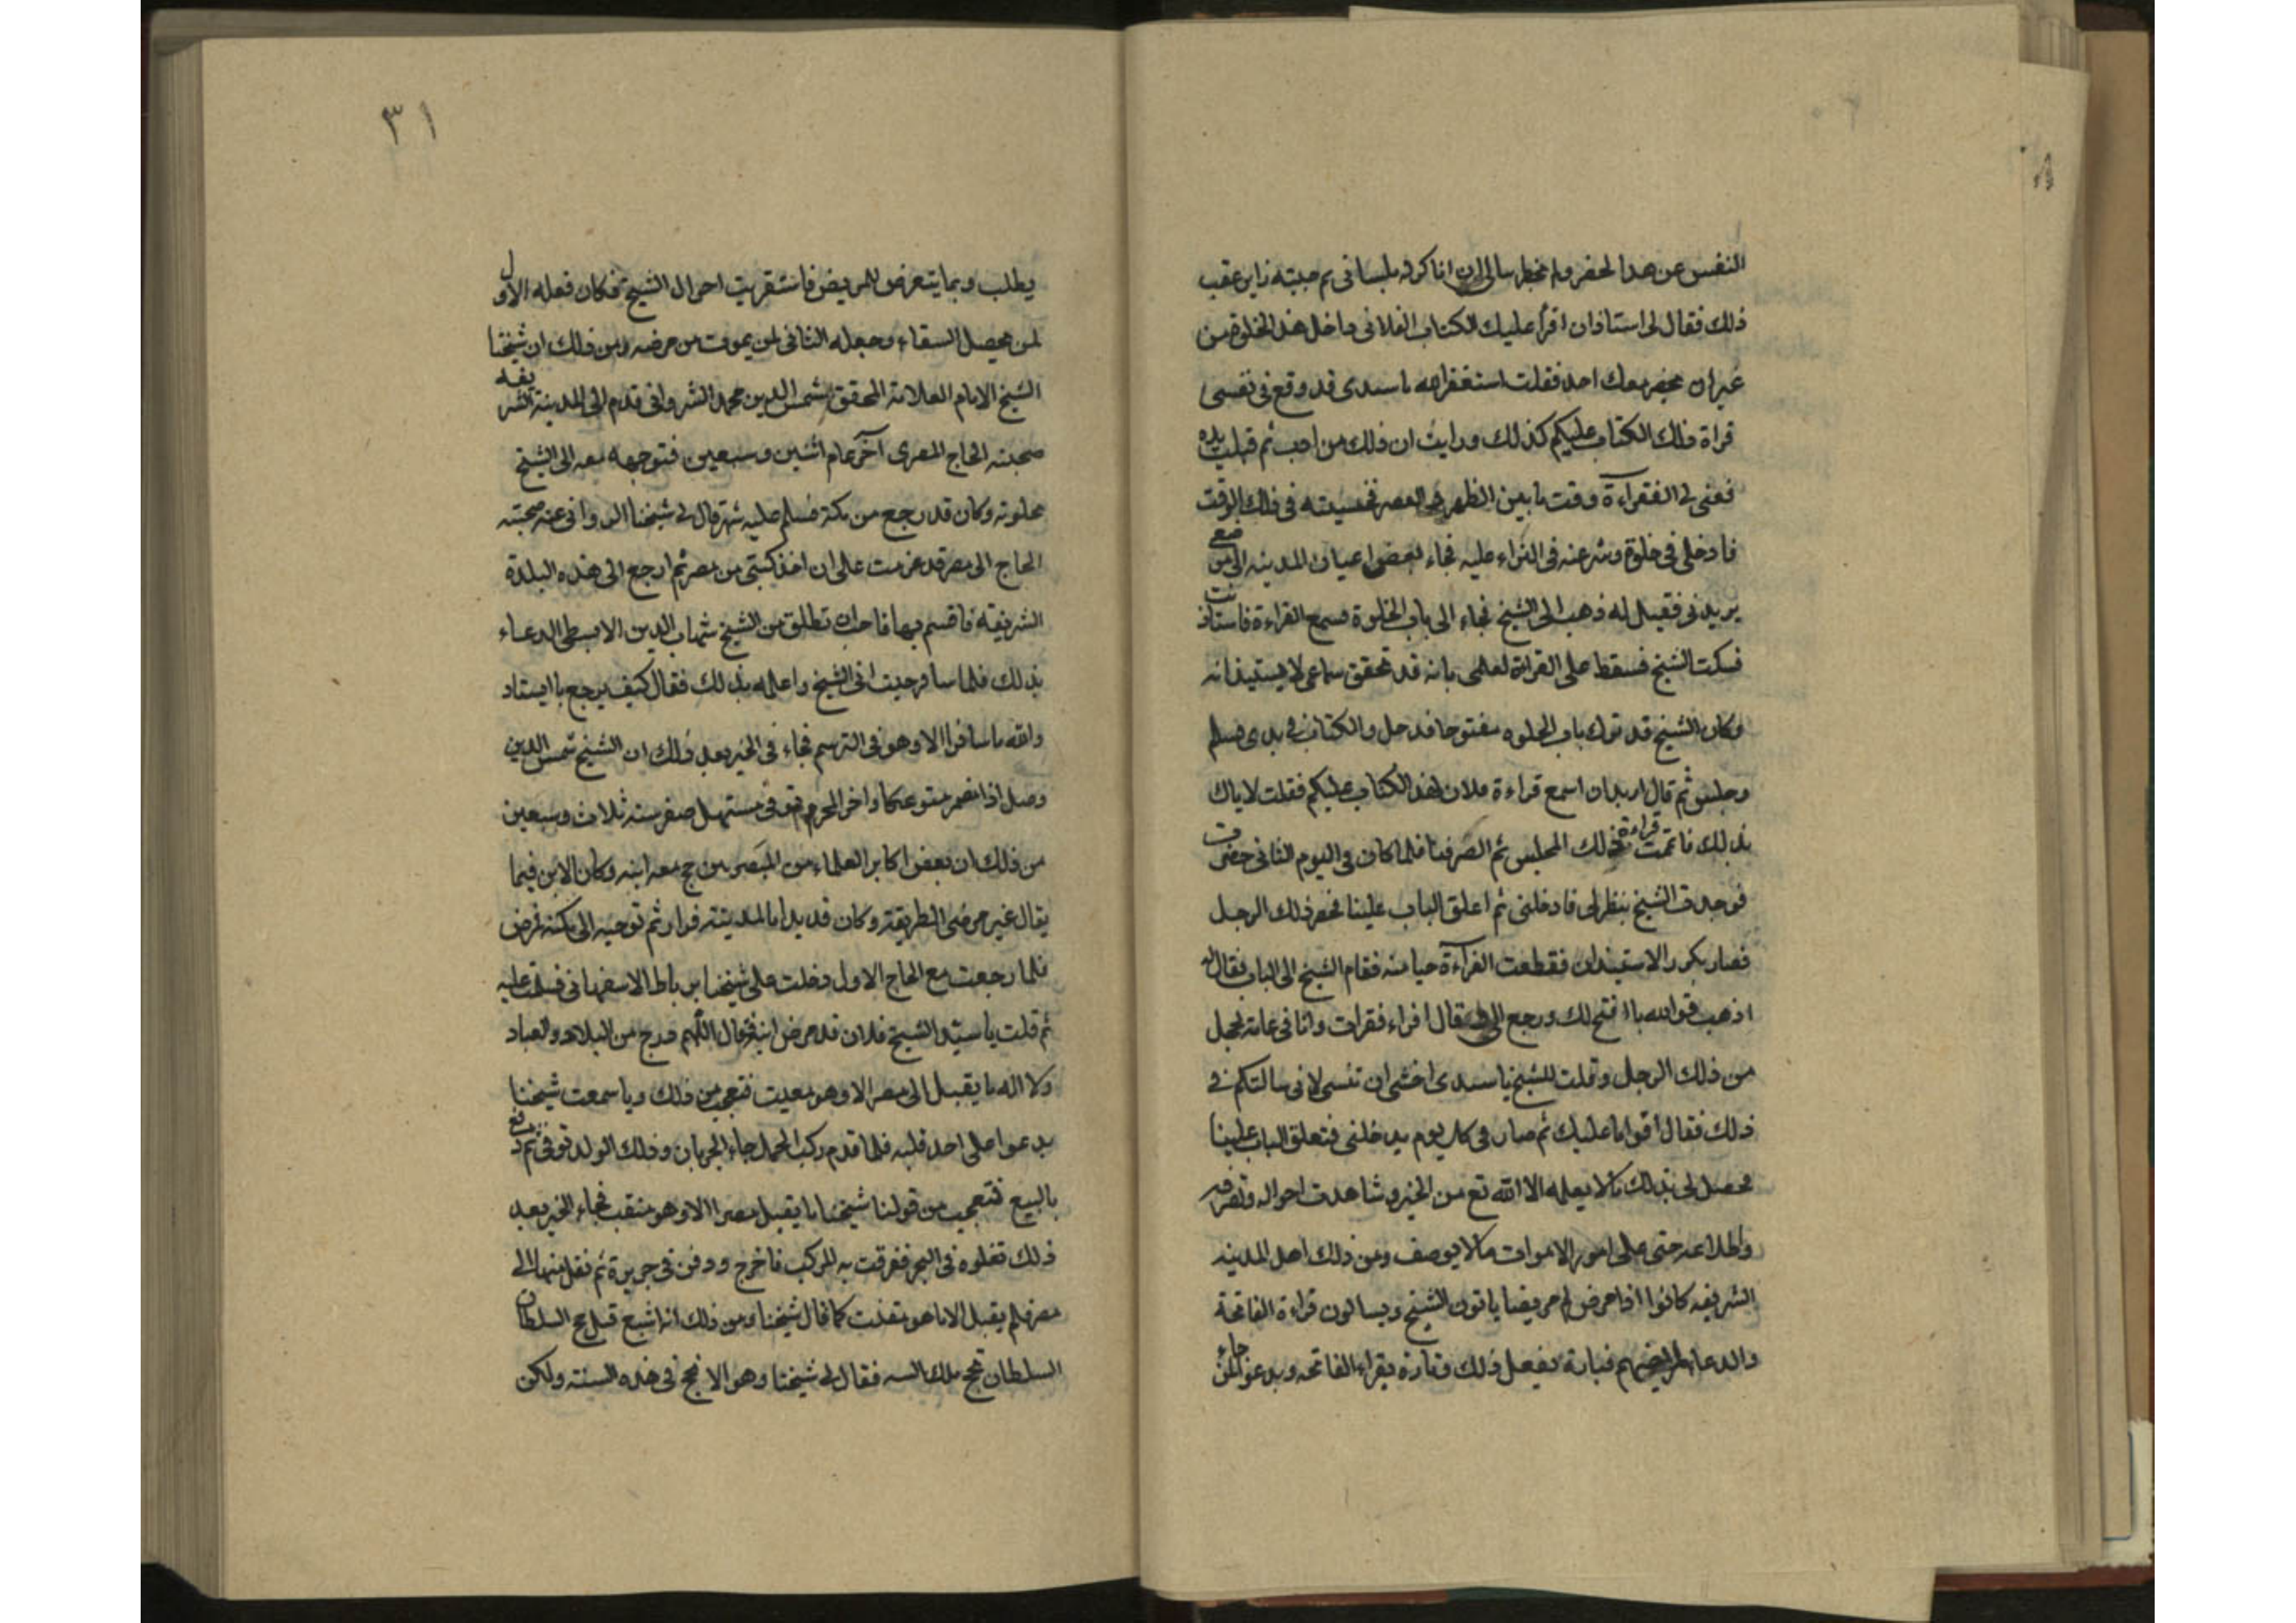 النفس عن هذا لحضر ولم يخطر ببالى انا كرته بلسانى ثم جيته زاير عقب
ذلك فقال لى استاذان اقرأ عليك الكتاب الفلانى داخل هذه الخلوة من
غير ان يحضر معك احد فقلت استغفر الله يا سيدى قد وقع فى نفسى
قراة ذلك الكتاب عليكم كذلك ورايت ان ذلك من احب ثم قبلت يده
فعنى لى الفقراءة وقت ما بين الظهر الى العصر فجيته فى ذلك الوقت
فادخلى فى خلوة وشرعنه فى القراء عليه فجاء بعض اعيان المدينه الى موضع
يريدنى فقيل له ذهب الى الشيخ فجاء الى باب الخلوة فسمع القراءة فاستاذنت
فسكت الشيخ فسقط على القراة لعلمى بانه قد تحقق سماعى لا يستيذانه
وكان الشيخ قد ترك باب الخلوه مفتوحا فدخل والكتاب فى يدى فسلم
وجلس ثم قال اريد ان اسمع قراءة فلان لهذا الكتاب عليكم فقلت لا ياك
بذلك فاتممت قراءة ذلك المجلس ثم انصرفنا فلما كان فى اليوم الثانى حضرت
فوجدت الشيخ ينظر لى فادخلنى ثم اغلق الباب علينا فحضر ذلك الرجل
فصار يكرر الاستيذان فقطعت القراءة حيا منه فقام الشيخ الى الباب فقال له
اذهب فوالله ما افتح لك ورجع الى وقال اقراء فقرات وانا فى غاية الخجل
من ذلك الرجل وقلت للشيخ يا سيدى اخشى ان تنسى لانى سالتكم فى
ذلك فقال اقراما عليك ثم صار فى كل يوم يدخلنى فتغلق الباب علينا
فحصل لى بذلك ما لا يعلمه الا الله تع من الخير وشاهدت احواله وتصرفه
واطلاعه حتى على امور الاموات ما لا يوصف ومن ذلك اهل المدينه
الشريفه كانوا اذا مرض لهم مريضا ياتون الشيخ ويسالون قراءة الفاتحة
والدعا لمريضهم فتارة يفعل ذلك وتارة يقراء الفاتحه ويدعو لمن جاء
٣١
يطلب وبما يتعرض للمريض فاستقريت احوال الشيخ فكان فعله الاول
لمن يحصل الشفاء وجعله الثانى لمن يموت من مرضه ومن ذلك ان شيخنا
الشيخ الامام العلامة المحقق شمس الدين محمد الشروانى قدم الى المدينة الشريفه
صحبته الحاج المصرى آخر عام اثنين وسبعين فتوجهه معه الى الشيخ
بخلوته وكان قد رجع من مكة فسلم عليه ثم قال لى شيخنا الشروانى عنه صحبته
الحاج الى مصر قد عزمت على ان اخذ كتبى من مصر ثم ارجع الى هذه البلدة
الشريفة فاقسم بها فاحب ان تطلق من الشيخ شهاب الدين الابسطى الدعاء
بذلك فلما سافر جيت انى الشيخ واعلمه بذلك فقال كيف يرجع يا ايستاد
والله ما سافرا الا وهو فى الترسم فجاء فى الخبر بعد ذلك ان الشيخ شمس الدين
وصل اذا مصر متوعكا واخر المحرم وتوفى مستهل صفر سنه ثلاث وسبعين
من ذلك ان بعض اكابر العلماء من المبصرين حج معه ابنه وكان الابن فيما
يقال غير مرضى الطريقة وكان قد بدا بالمدينة فزار ثم توجيه الى مكة فمرض
فلما رجعت مع الحاج الاول دخلت على شيخنا برباط الاصفهانى فسلمت عليه
ثم قلت يا سيدى الشيخ فلان قد مرض ابنه فقال اللهم فرج من البلاد والعباد
ولا الله ما يقبل الى مصر الا وهو معيت فتعجبت من ذلك وما سمعت شيخنا
يدعوا على احد قلبه فلما قدم ركب المحمل جاء الخبر بان وذلك الولد توفى ثم دفع
بالبيع فتعجبت من قولنا شيخنا ما يقبل مصرا الا وهو منقب فجاء الخبر بعد
ذلك تقلوه فى البحر فغرقت به المركب فاخرج ودفن فى جزيرة ثم نقل منها الى
مصر فلم يقبل الا ما هو متفلت كما قال شيخنا ومن ذلك انه اشيع قبل حج السلطان
السلطان تحج ملك السه فقال لى شيخنا وهو الا نحج فى هذه السنة ولكن